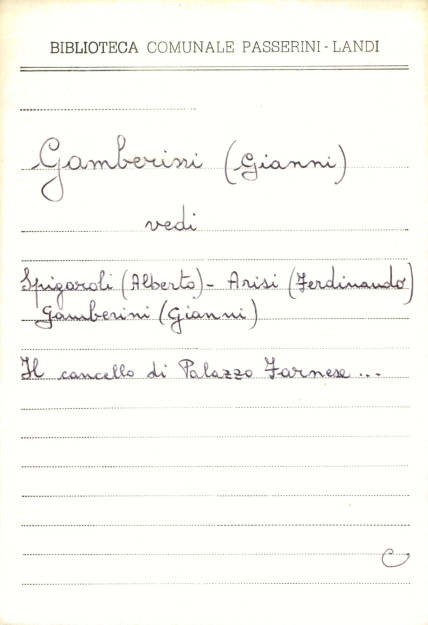 BIBLIOTECA COMUNALE PASSERINI - LANDI
Gamberini (Gianni)
vedi
Spigaroli (Alberto) - Arisi (Ferdinando)
Gamberini (Gianni)
Il cancello di Palazzo Farnese ...
C